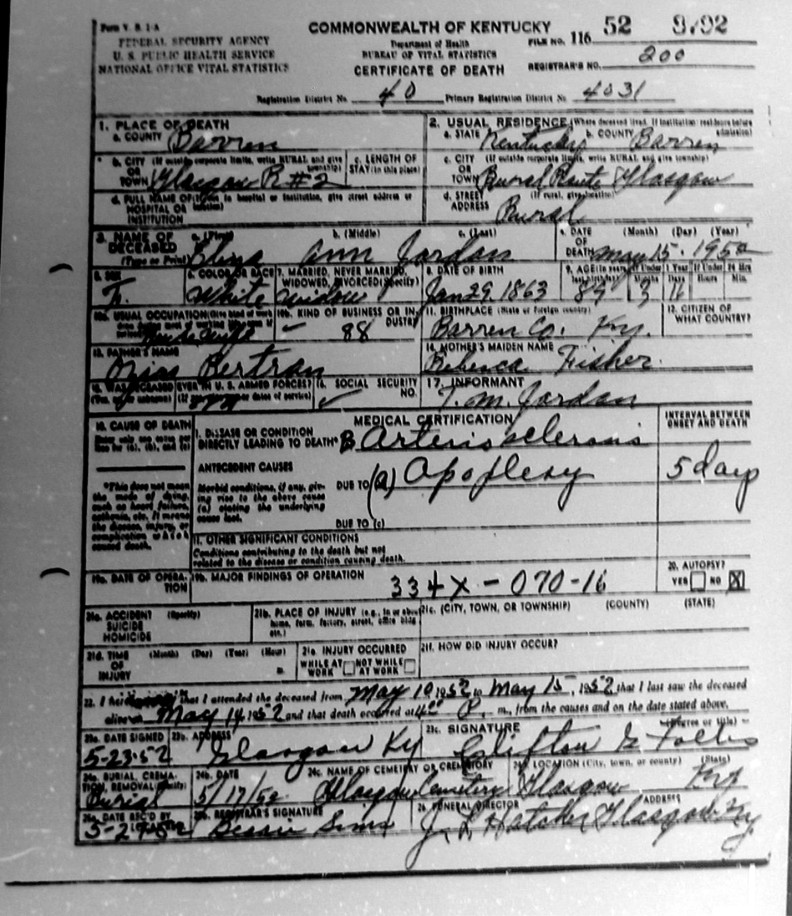 Form V. S. 1-A
FEDERAL SECURITY AGENCY
U. S. PUBLIC HEALTH SERVICE
NATIONAL OFFICE VITAL STATISTICS
COMMONWEALTH OF KENTUCKY
Department of Health
BUREAU OF VITAL STATISTICS
CERTIFICATE OF DEATH
FILE NO. 116 52
REGISTRAR'S NO. 200
Registration District No. 40 Primary Registration District No. 4031
1. PLACE OF DEATH
a. COUNTY Barren
2. USUAL RESIDENCE (Where deceased lived. If institution: residence before admission)
a. STATE Kentucky b. COUNTY Barren
b. CITY (If outside corporate limits, write RURAL and give township) OR TOWN Glasgow R#2
c. LENGTH OF STAY (in this place)
c. CITY (If outside corporate limits, write RURAL and give township) OR TOWN Rural Route Glasgow
d. FULL NAME OF (If not in hospital or institution, give street address or location) HOSPITAL OR INSTITUTION
d. STREET ADDRESS (If rural, give location) Rural
3. NAME OF DECEASED (Type or Print) a. (First) b. (Middle) c. (Last)
Ann Jordan
4. DATE OF DEATH (Month) (Day) (Year)
May 15. 1952
5. SEX F.
6. COLOR OR RACE White
7. MARRIED, NEVER MARRIED, WIDOWED, DIVORCED (Specify) widow
8. DATE OF BIRTH Jan 29. 1863
9. AGE (In years last birthday) 89 If Under 1 Year Months 3 Days 16 If Under 24 Hrs Hours Min.
10a. USUAL OCCUPATION
10b. KIND OF BUSINESS OR INDUSTRY 88
11. BIRTHPLACE (State or foreign country) Barren Co. Ky.
12. CITIZEN OF WHAT COUNTRY?
13. FATHER'S NAME
14. MOTHER'S MAIDEN NAME
Rebecca Fisher
15. WAS DECEASED EVER IN U. S. ARMED FORCES?
16. SOCIAL SECURITY NO.
17. INFORMANT
T. M. Jordan
18. CAUSE OF DEATH
Enter only one cause per line for (a), (b), and (c)
MEDICAL CERTIFICATION
INTERVAL BETWEEN ONSET AND DEATH
I. DISEASE OR CONDITION DIRECTLY LEADING TO DEATH* Arteriosclerosis
*This does not mean the mode of dying, such as heart failure, asthenia, etc. It means the disease, injury, or complication which caused death.
ANTECEDENT CAUSES
Morbid conditions, if any, giving rise to the above cause (a) stating the underlying cause last.
DUE TO (a) Apoplexy 5 days
DUE TO (c)
II. OTHER SIGNIFICANT CONDITIONS
Conditions contributing to the death but not related to the disease or condition causing death.
19a. DATE OF OPERATION
19b. MAJOR FINDINGS OF OPERATION
334X - 070-16
20. AUTOPSY?
YES NO X
21a. ACCIDENT (Specify) SUICIDE HOMICIDE
21b. PLACE OF INJURY (e.g., in or about home, farm, factory, street, office bldg., etc.)
21c. (CITY, TOWN, OR TOWNSHIP) (COUNTY) (STATE)
21d. TIME OF INJURY (Month) (Day) (Year) (Hour) m.
21e. INJURY OCCURRED
WHILE AT WORK NOT WHILE AT WORK
21f. HOW DID INJURY OCCUR?
22. I hereby certify that I attended the deceased from May 10, 1952 to May 15, 1952 that I last saw the deceased
alive on May 14, 1952 and that death occurred at 4:00 P. m., from the causes and on the date stated above.
23a. DATE SIGNED 5-23-52
23b. ADDRESS Glasgow Ky
23c. SIGNATURE (Degree or title)
Clifton
24a. BURIAL, CREMATION, REMOVAL (Specify) Burial
24b. DATE 5/17/52
24c. NAME OF CEMETERY OR CREMATORY Glasgow Cemetery
24d. LOCATION (City, town, or county) (State) Glasgow Ky
25a. DATE REC'D BY
25b. REGISTRAR'S SIGNATURE
26. FUNERAL DIRECTOR ADDRESS
J. L. Hatcher Glasgow Ky